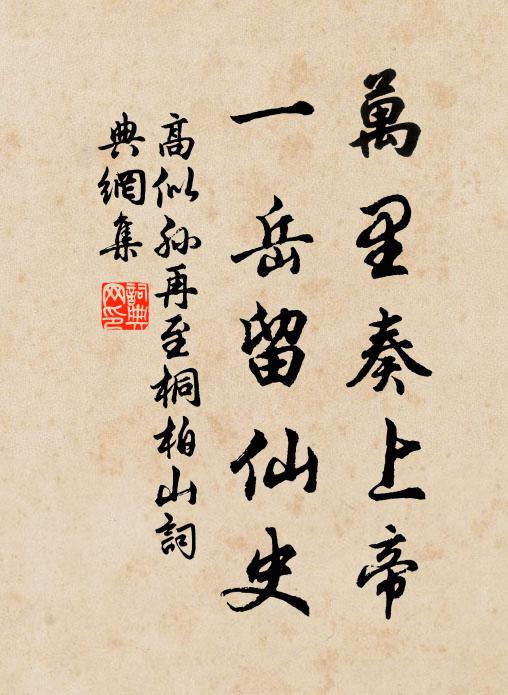 萬里奏上帝
一岳留仙史
高似孫再至桐柏山詞
典網集
詞典網印